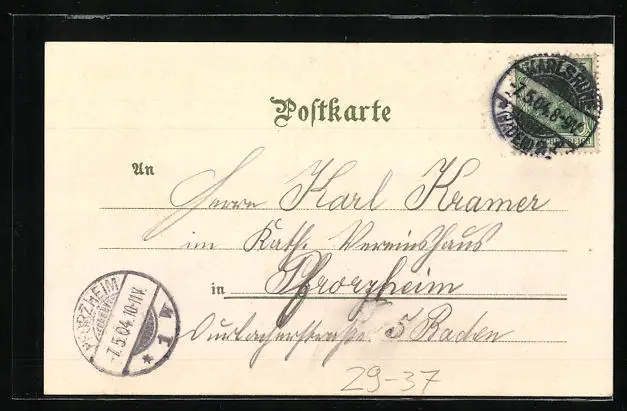 KARLSRUHE
-7.5.04.8-9V.
(BADEN) 2
Postkarte
An
Herrn Karl Kramer
im Kath. Vereinshaus
in Pforzheim
Durlacherstraße 5 Baden
PFORZHEIM
-7.5.04.10-11V.
* 1 w
29-37